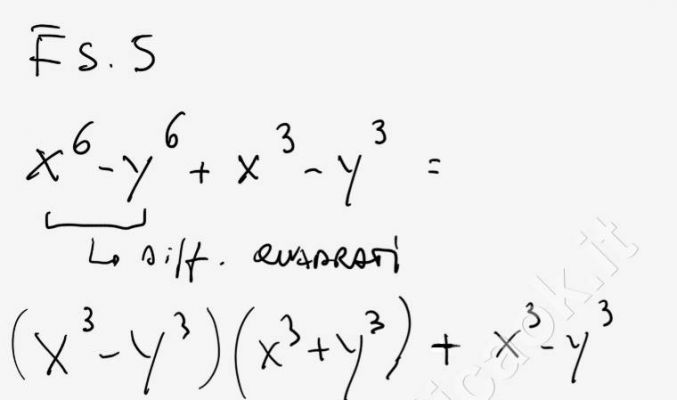 Es. 5
x⁶ - y⁶ + x³ - y³ =
↳ Diff. QUADRATI
(x³ - y³)(x³ + y³) + x³ - y³